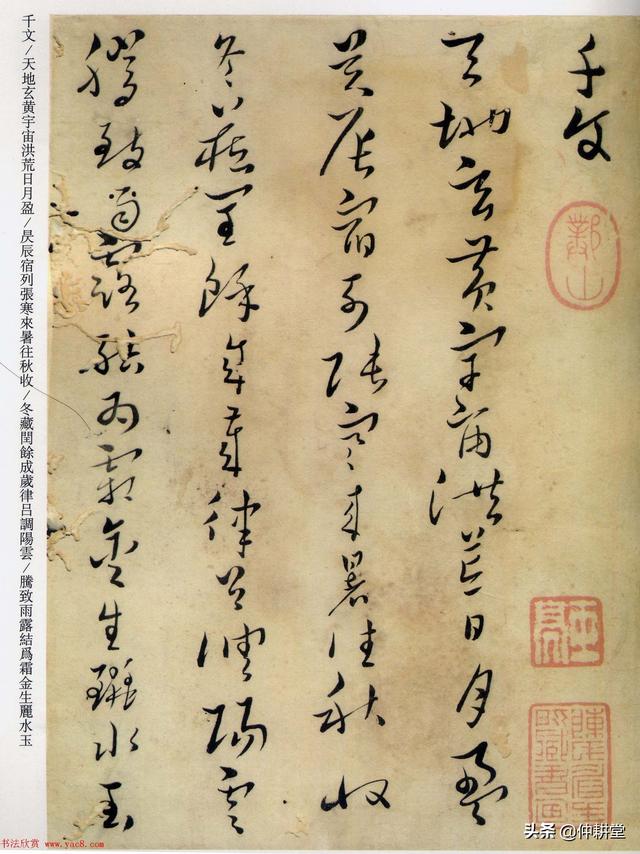 千文
天地玄黄宇宙洪荒日月盈
昃辰宿列張寒来暑往秋收
冬藏閏餘成歲律吕調陽雲
騰致雨露結為霜金生麗水玉
千文/天地玄黄宇宙洪荒日月盈/昃辰宿列張寒來暑往秋收/冬藏閏餘成歲律吕調陽雲/騰致雨露結爲霜金生麗水玉
书法欣赏 www.yac8.com
头条 @仲耕堂